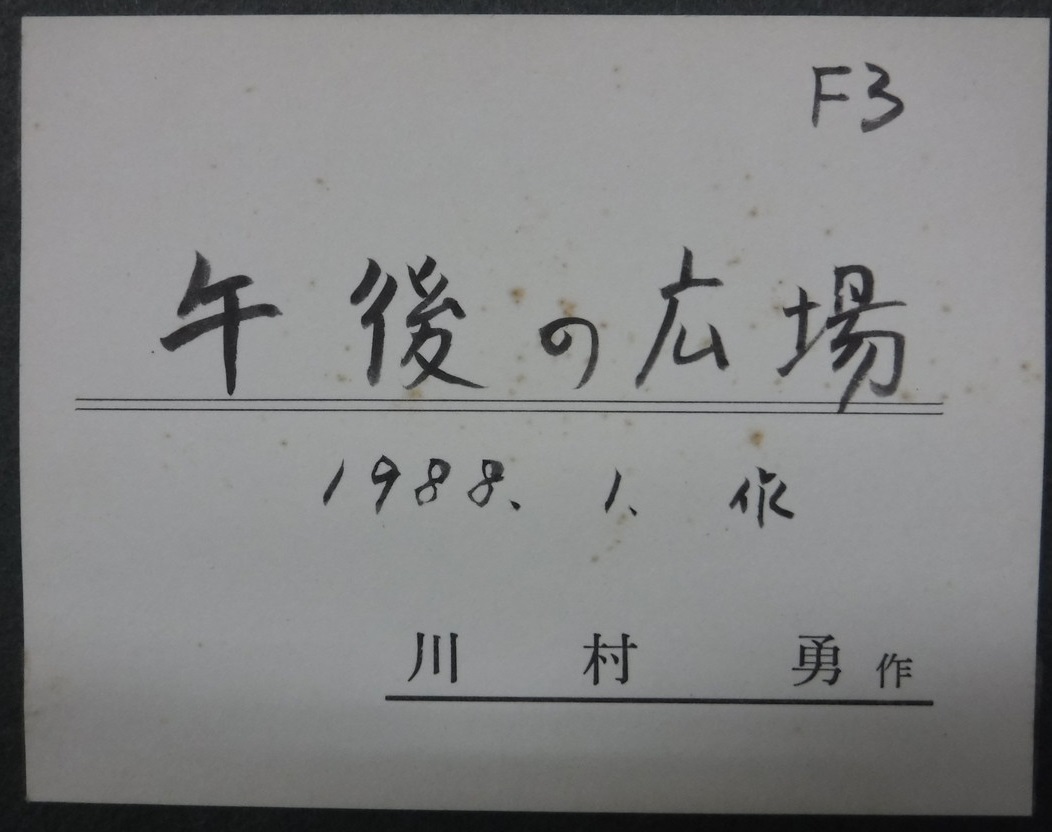 F3
午後の広場
1988. 1. 作
川村勇作